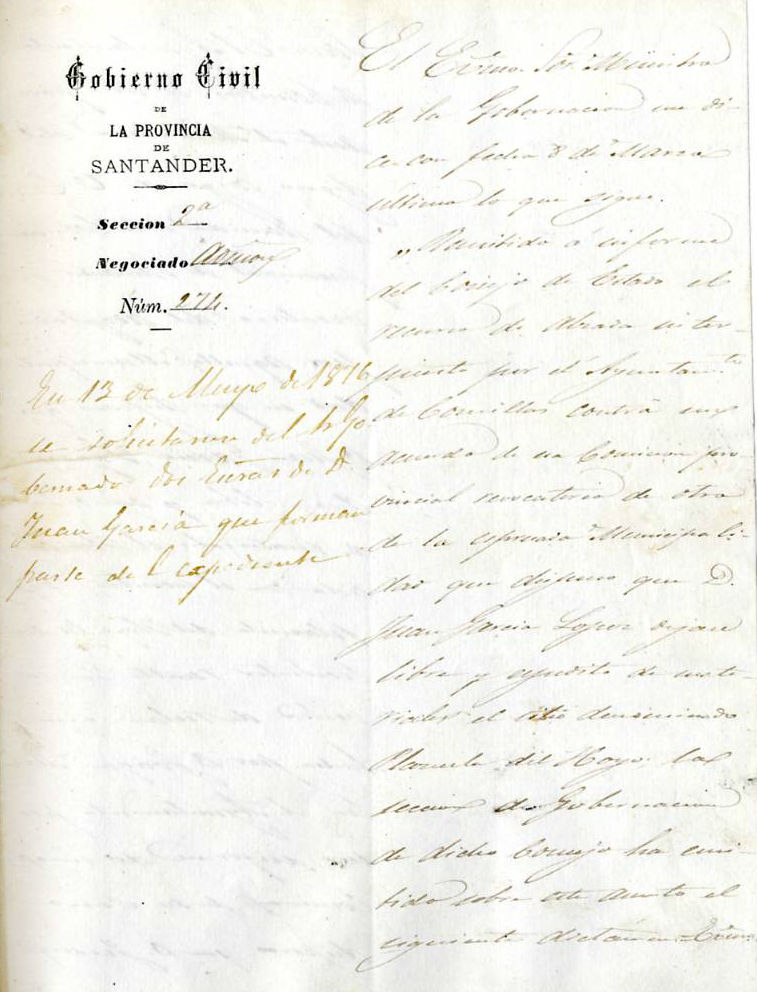 Gobierno Civil
DE
LA PROVINCIA
DE
SANTANDER.
Seccion 2ª
Negociado
Núm. 274.
En 13 de Mayo de 1876
se solicitaron del Sr Go
bernador dos de D.
Juan García que forman
parte del expediente
El Excmo. Sor. Ministro
de la Gobernacion me di-
ce con fecha 8 de Marzo
último lo que sigue.
„Remitido á informe
del Consejo de Estado el
recurso de Alzada inter-
puesto por el Ayuntamto
de Comillas contra un
acuerdo de esa Comision pro-
vincial revocatorio de otro
de la espresada Municipali-
dad que dispuso que D.
Juan Garcia Lopez dejase
libre y espedito de mate-
riales el sitio denominado
Plazuela del Hoyo. la
seccion de Gobernacion
de dicho Consejo ha emi-
tido sobre este asunto el
siguiente dictámen=Excmo